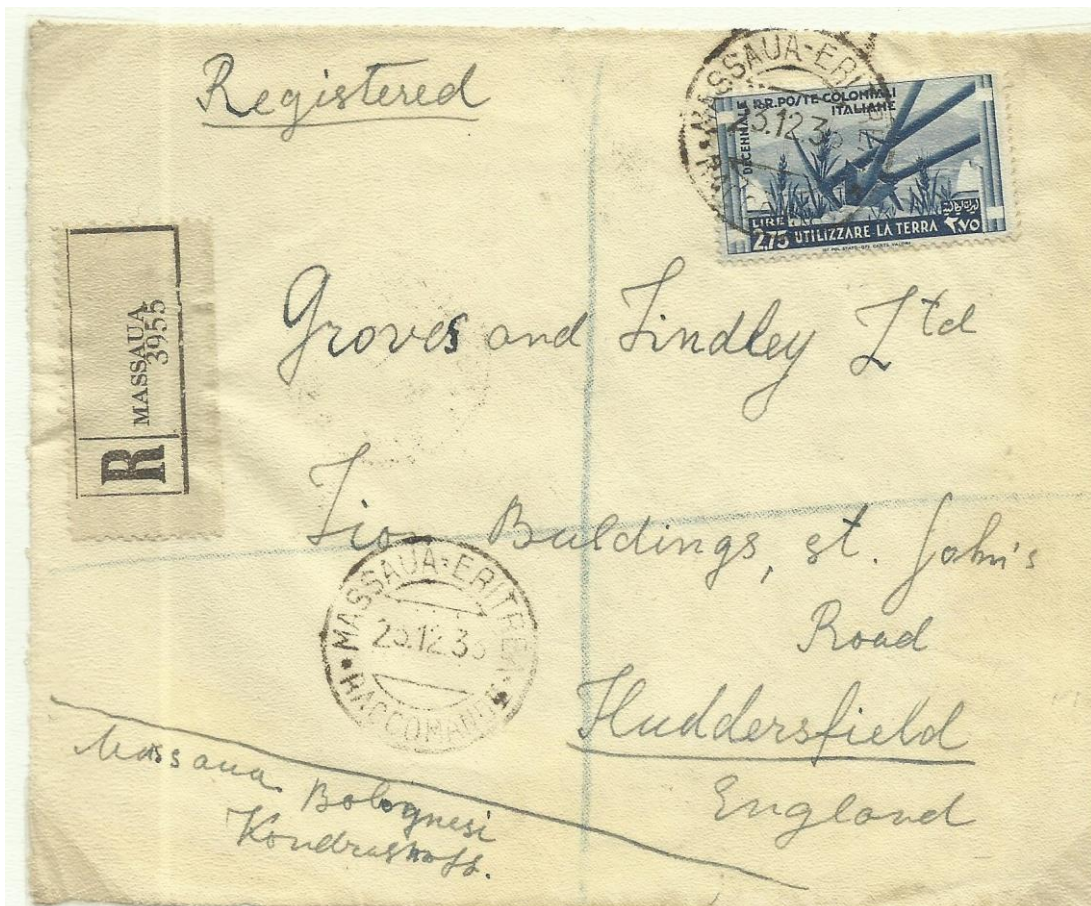 Registered
MASSAUA-ERITREA
23.12.33
DECENNALE
R.R. POSTE COLONIALI
ITALIANE
LIRE
2,75 UTILIZZARE LA TERRA ٢,٧٥
R
MASSAUA
3955
Groves and Lindley Ltd
Lion Buldings, st. John's
Road
Huddersfield
England
MASSAUA-ERITREA
23.12.33
RACCOMANDATE
Massaua Bolognesi
Kondrashoff.